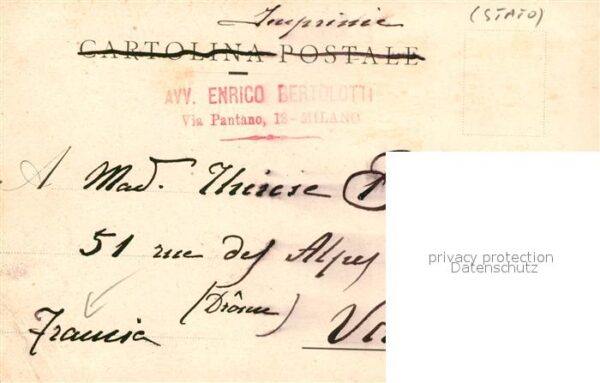 Imprimée
(STATO)
CARTOLINA POSTALE
AVV. ENRICO BERTOLOTTI
Via Pantano, 18 - MILANO
A Mad. Thérèse
51 rue des Alpes
(Drôme)
Francia
privacy protection
Datenschutz